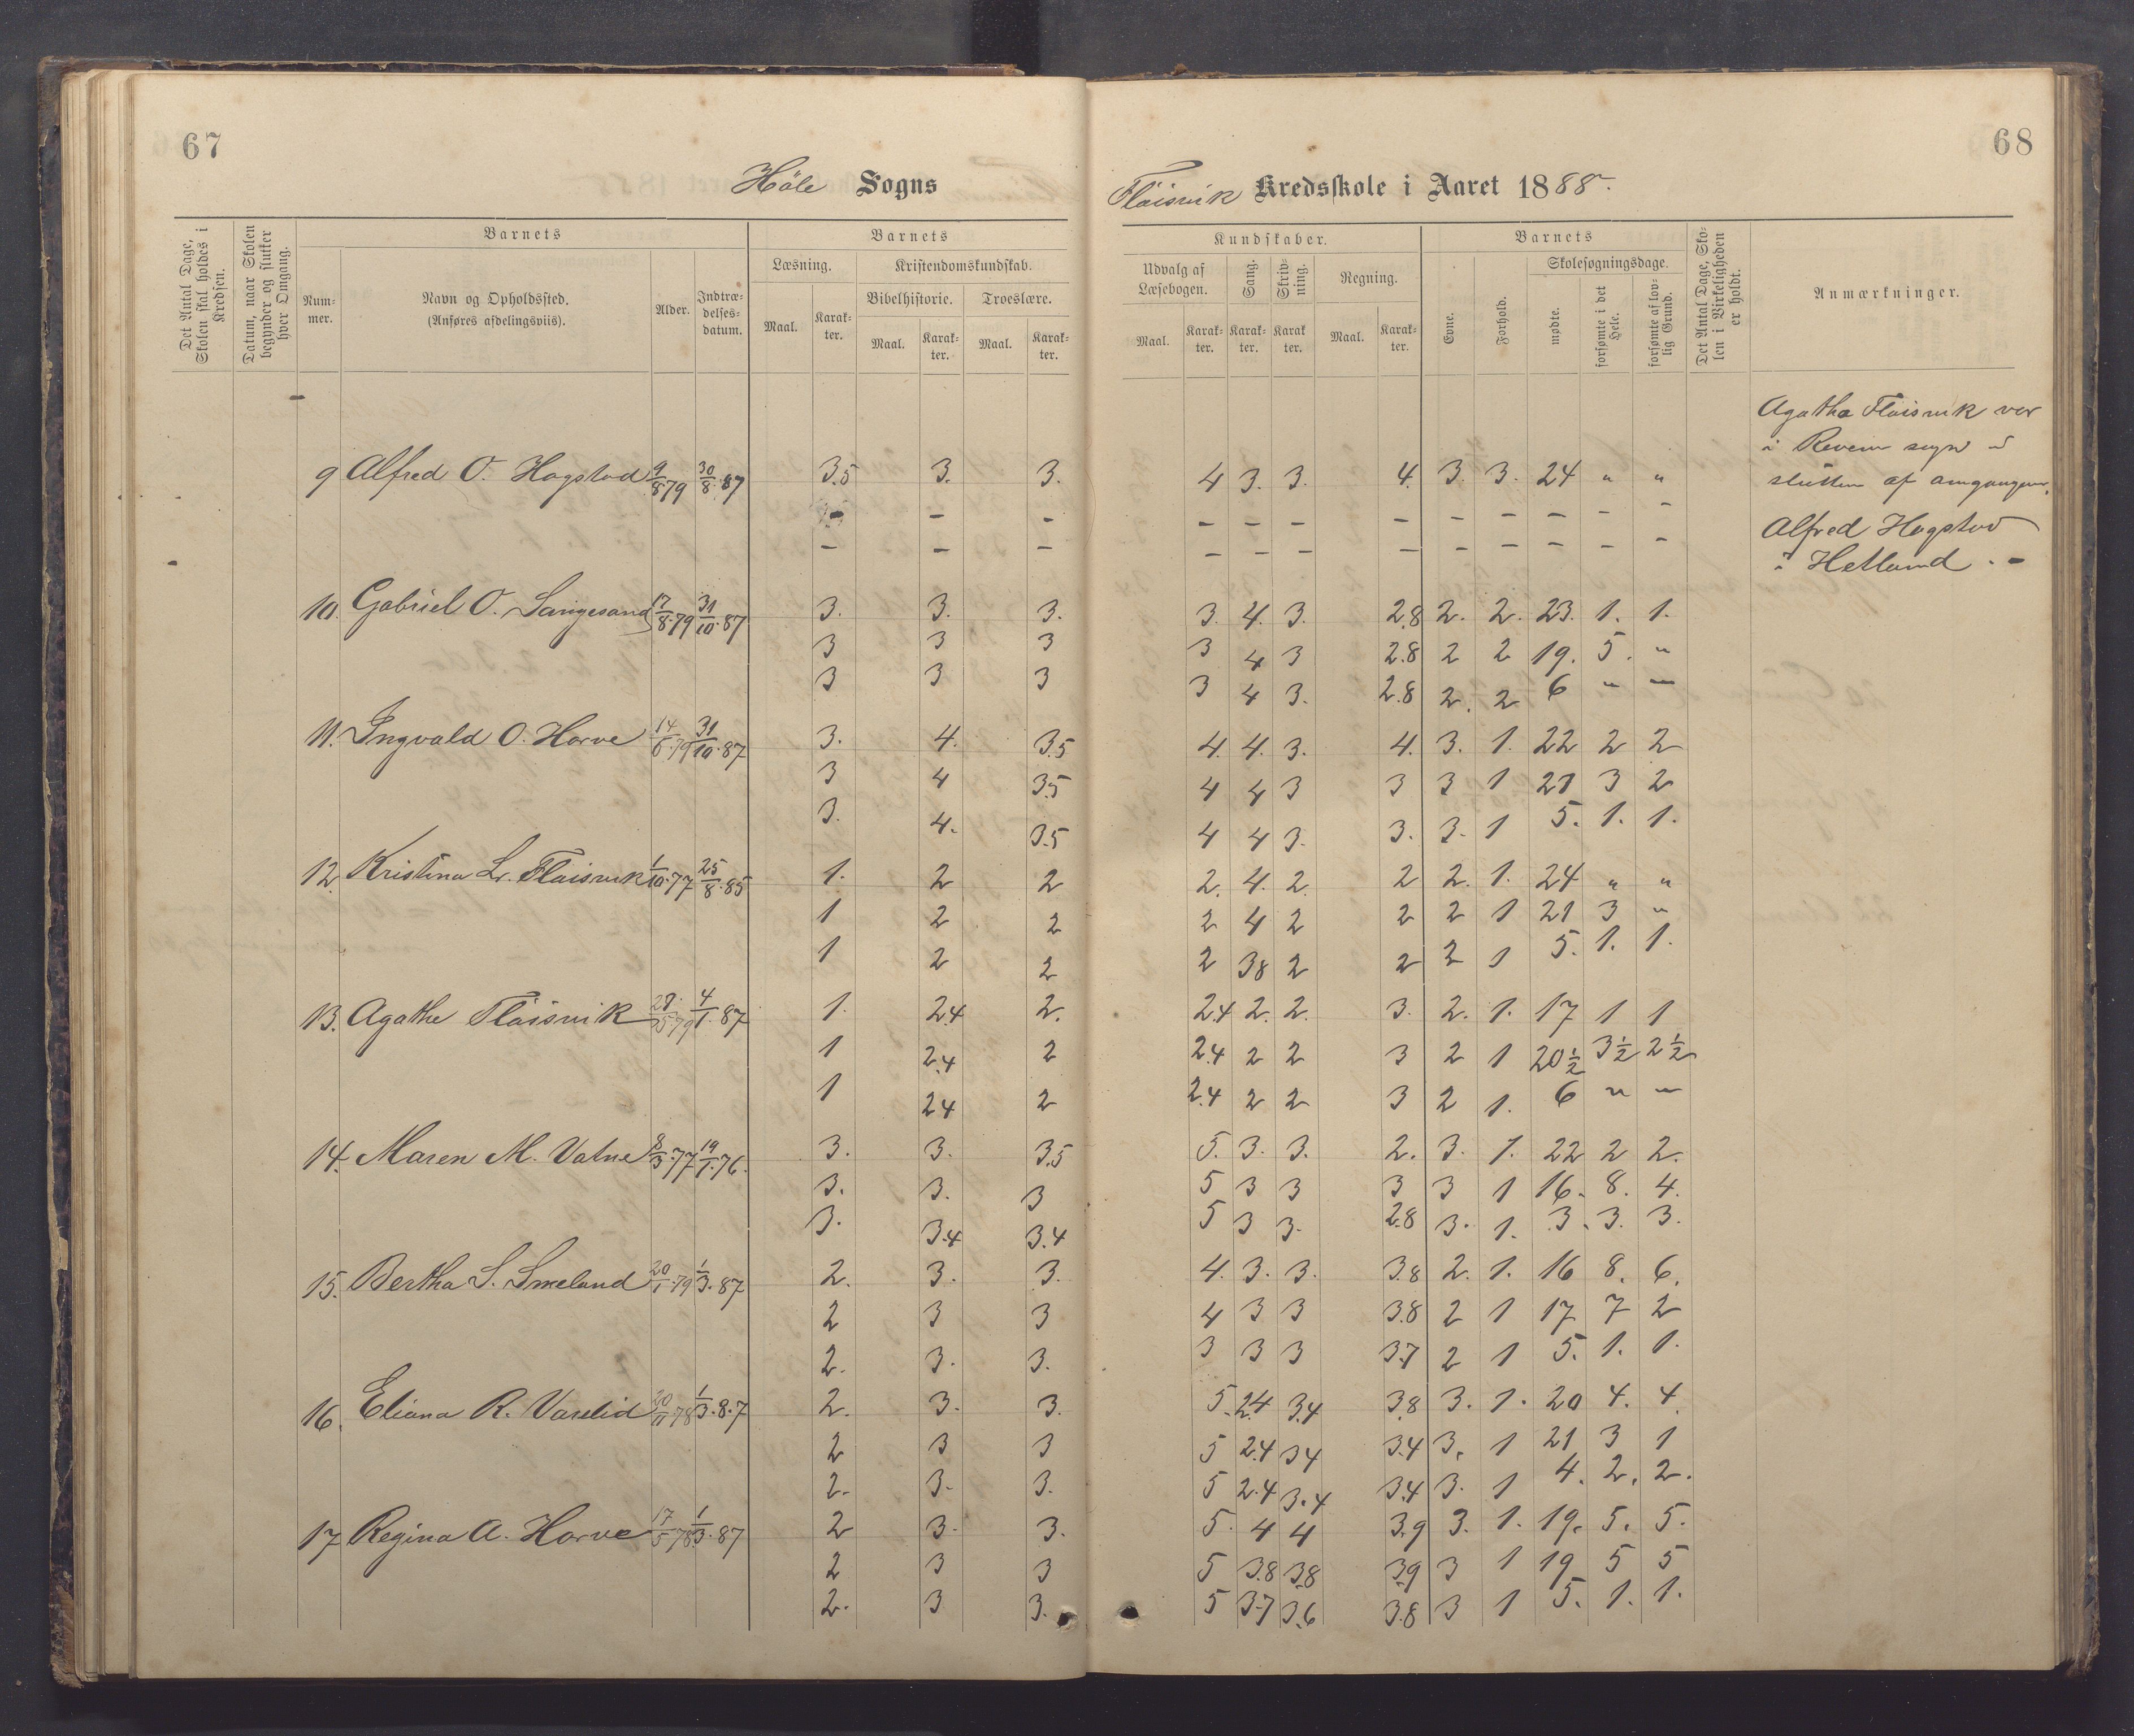 67
68
Höle Sogns
Fløisvik Kredsskole i Aaret 1888.
Det Antal Dage, Skolen skal holdes i Kredsen.
Datum, naar Skolen begynder og slutter hver Omgang.
Barnets
Nummer.
Navn og Opholdssted. (Anføres afdelingsviis).
Alder.
Indtrædelsesdatum.
Barnets
Læsning.
Maal.
Karakter.
Kristendomskundskab.
Bibelhistorie.
Maal.
Karakter.
Troeslære.
Maal.
Karakter.
Kundskaber.
Udvalg af Læsebogen.
Maal.
Karakter.
Sang.
Karakter.
Skrivning.
Karakter.
Regning.
Maal.
Karakter.
Barnets
Evne.
Forhold.
Skolesøgningsdage.
mødte.
forsømte i det Hele.
forsømte af lovlig Grund.
Det Antal Dage, Skolen i Virkeligheden er holdt.
Anmærkninger.
Agatha Fløisvik var
i sogn i
slutten af omgangen.
Alfred Hogstad
i Hetland. -
9 Alfred O. Hogstad 9/8 79 30/8 87 3.5 3. 3. 4 3. 3. 4. 3. 3. 24 " "
- - - - - - - - - - - -
- - - - - - - - - - - -
10. Gabriel O. Langesand 17/8 79 31/10 87 3. 3. 3. 3. 4. 3. 2.8 2. 2. 23. 1. 1.
3 3 3 3 4 3 2.8 2 2 19. 5. "
3 3 3 3 4 3. 2.8 2. 2 6 " "
11. Ingvald O. Horve 14/6 79 31/10 87 3. 4. 3.5 4. 4. 3. 4. 3. 1. 22 2 2
3 4 3.5 4 4 3 3 3 1 21 3 2
3. 4. 3.5 4 4 3. 3. 3. 1 5. 1. 1.
12. Kristina L. Fløisvik 1/10 77 25/8 85 1. 2 2 2. 4. 2. 2 2. 1. 24 " "
1 2 2 2 4 2 2 2 1 21 3 "
1 2 2 2 3.8 2 2 2 1 5. 1. 1.
13. Agathe Fløisvik 4/1 87 1. 2.4 2. 2.4 2. 2. 3. 2. 1. 17 1 1
1 2.4 2 2.4 2 2 3 2 1 20 1/2 3 1/2 2 1/2
1 2.4 2 2.4 2 2 3 2 1. 6 " "
14. Maren M. Vatne 8/3 77 19/1 76. 3. 3. 3.5 5. 3. 3. 2. 3. 1. 22 2 2.
3. 3. 3 5 3 3 3 3 1 16. 8. 4.
3. 3.4 3.4 5 3 3. 2.8 3. 1. 3. 3. 3.
15. Bertha S. Smeland 20/1 79 1/3 87 2. 3. 3. 4. 3. 3. 3.8 2. 1. 16 8. 6.
2 3 3 4 3 3 3.8 2 1 17 7 2
2. 3. 3. 3 3 3 3.7 2 1 5. 1. 1.
16. Eliana R. Varelid 20/11 78 1/3 87 2. 3. 3. 5. 2.4 3.4 3.8 3. 1. 20 4. 4.
2 3 3 5 2.4 3.4 3.4 3. 1 21 3 1
2. 3. 3. 5 2.4 3.4 3.4 3. 1 4. 2. 2.
17 Regina A. Horve 17/5 78 1/3 87 2 3. 3. 5. 4 4 3.9 3. 1. 19. 5. 5.
2 3 3 5 3.8 3.8 3.9 3 1 19 5 5
2. 3 3. 5 3.7 3.6 3.8 3 1 5. 1. 1.